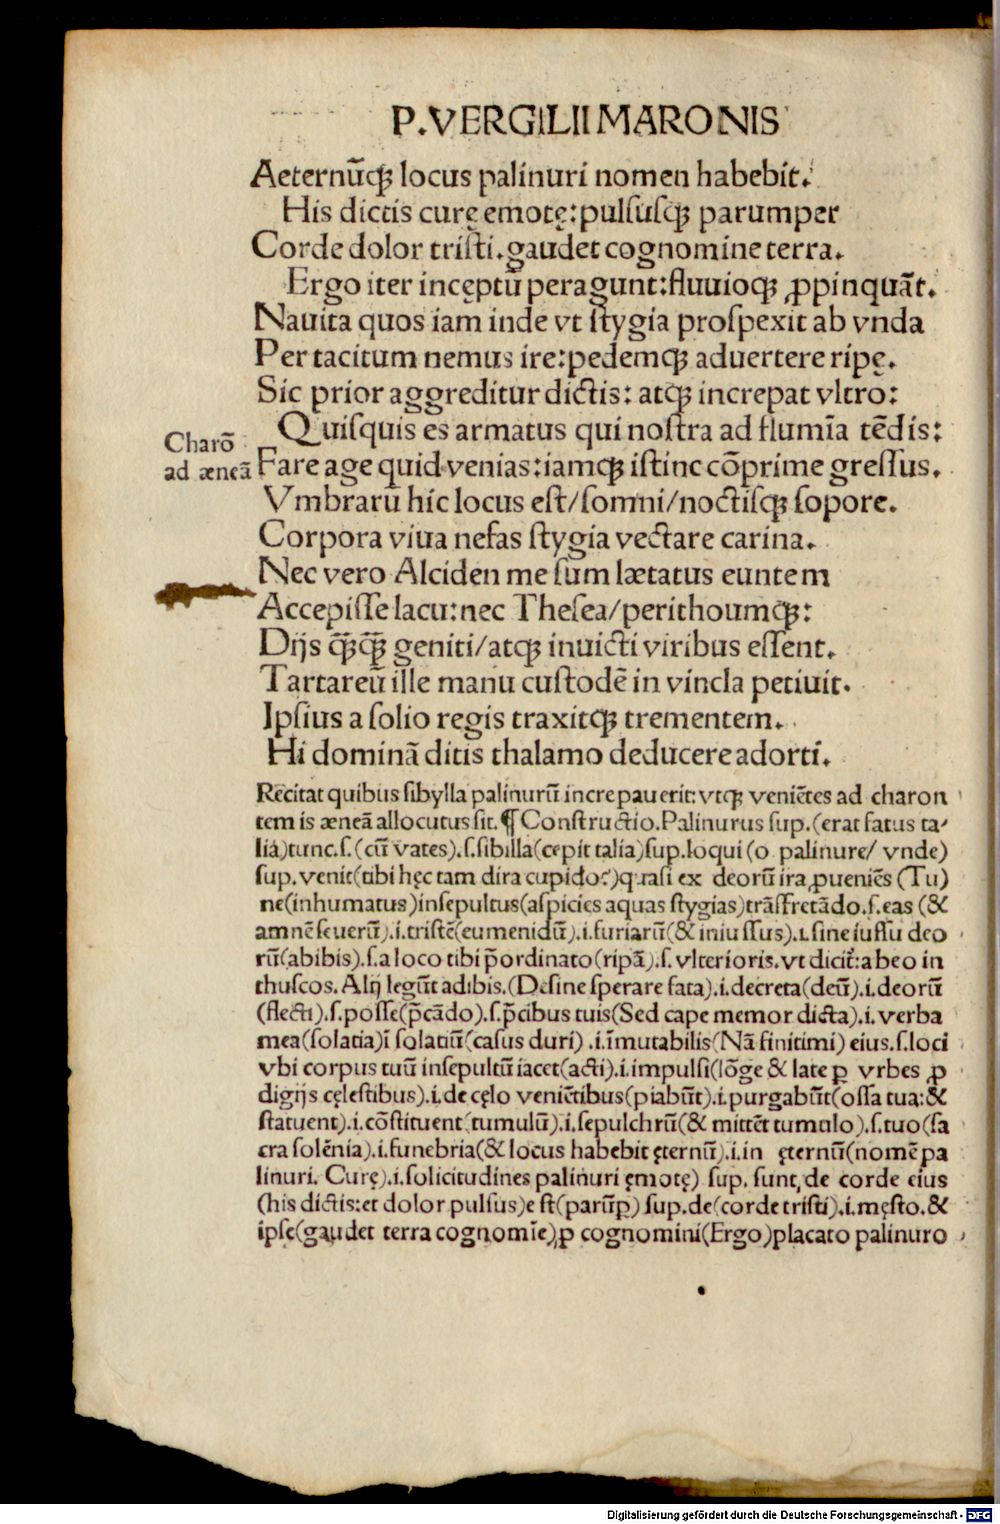 P.VERGILII MARONIS
Aeternūqꝫ locus palinuri nomen habebit.
His dictis curę emotę: pulsusqꝫ parumper
Corde dolor tristi. gaudet cognomine terra.
Ergo iter incęptū peragunt: fluuioqꝫ ꝓpinquāt.
Nauita quos iam inde vt stygia prospexit ab vnda
Per tacitum nemus ire: pedemqꝫ aduertere ripę.
Sic prior aggreditur dictis: atqꝫ increpat vltro:
Quisquis es armatus qui nostra ad flumīa tēdis:
Charō
ad æneā
Fare age quid venias: iamqꝫ istinc cōprime gressus.
Vmbrarū hic locus est/somni/noctisqꝫ sopore.
Corpora viua nefas stygia vectare carina.
Nec vero Alciden me sum lætatus euntem
Accepisse lacu: nec Thesea/perithoumqꝫ:
Dijs qꝫ̄qꝫ̄ geniti/atqꝫ inuicti viribus essent.
Tartareū ille manu custodē in vincla petiuit.
Ipsius a solio regis traxitqꝫ trementem.
Hi dominā ditis thalamo deducere adorti.
Recitat quibus sibylla palinurū increpauerit: vtqꝫ veniētes ad charon
tem is æneā allocutus sit. ¶ Constructio. Palinurus sup. (erat fatus ta-
lia) tunc. s. (cū vates). s. sibilla (cępit talia) sup. loqui (o palinure/ vnde)
sup. venit (tibi hęc tam dira cupido?) quasi ex deorū ira ꝓueniēs (Tu)
ne (inhumatus) insepultus (aspicies aquas stygias) trāsfretādo. s. eas (&
amnē seuerū). i. tristē (eumenidū). i. furiarū (& iniussus). i. sine iussu deo
rū (abibis). s. a loco tibi p̄ordinato (ripā). s. vlterioris. vt dicit̄: abeo in
thuscos. Alij legūt adibis. (Desine sperare fata). i. decreta (deū). i. deorū
(flecti). s. posse (p̄cādo). s. p̄cibus tuis (Sed cape memor dicta). i. verba
mea (solatia) ī solatiū (casus duri). i. īmutabilis (Nā finitimi) eius. s. loci
vbi corpus tuū insepultū iacet (acti). i. impulsi (lōge & late ꝑ vrbes ꝓ
digijs cęlestibus). i. de cęlo veniētibus (piabūt). i. purgabūt (ossa tua: &
statuent). i. cōstituent (tumulū). i. sepulchrū (& mittēt tumulo). s. tuo (sa
cra solēnia). i. funebria (& locus habebit ęternū). i. in ęternū (nomē pa
linuri. Curę). i. solicitudines palinuri ęmotę) sup. sunt, de corde eius
(his dictis: et dolor pulsus) est (parūꝑ) sup. de (corde tristi). i. męsto. &
ipse (gaudet terra cognomīe) ꝓ cognomini (Ergo) placato palinuro
Digitalisierung gefördert durch die Deutsche Forschungsgemeinschaft - DFG